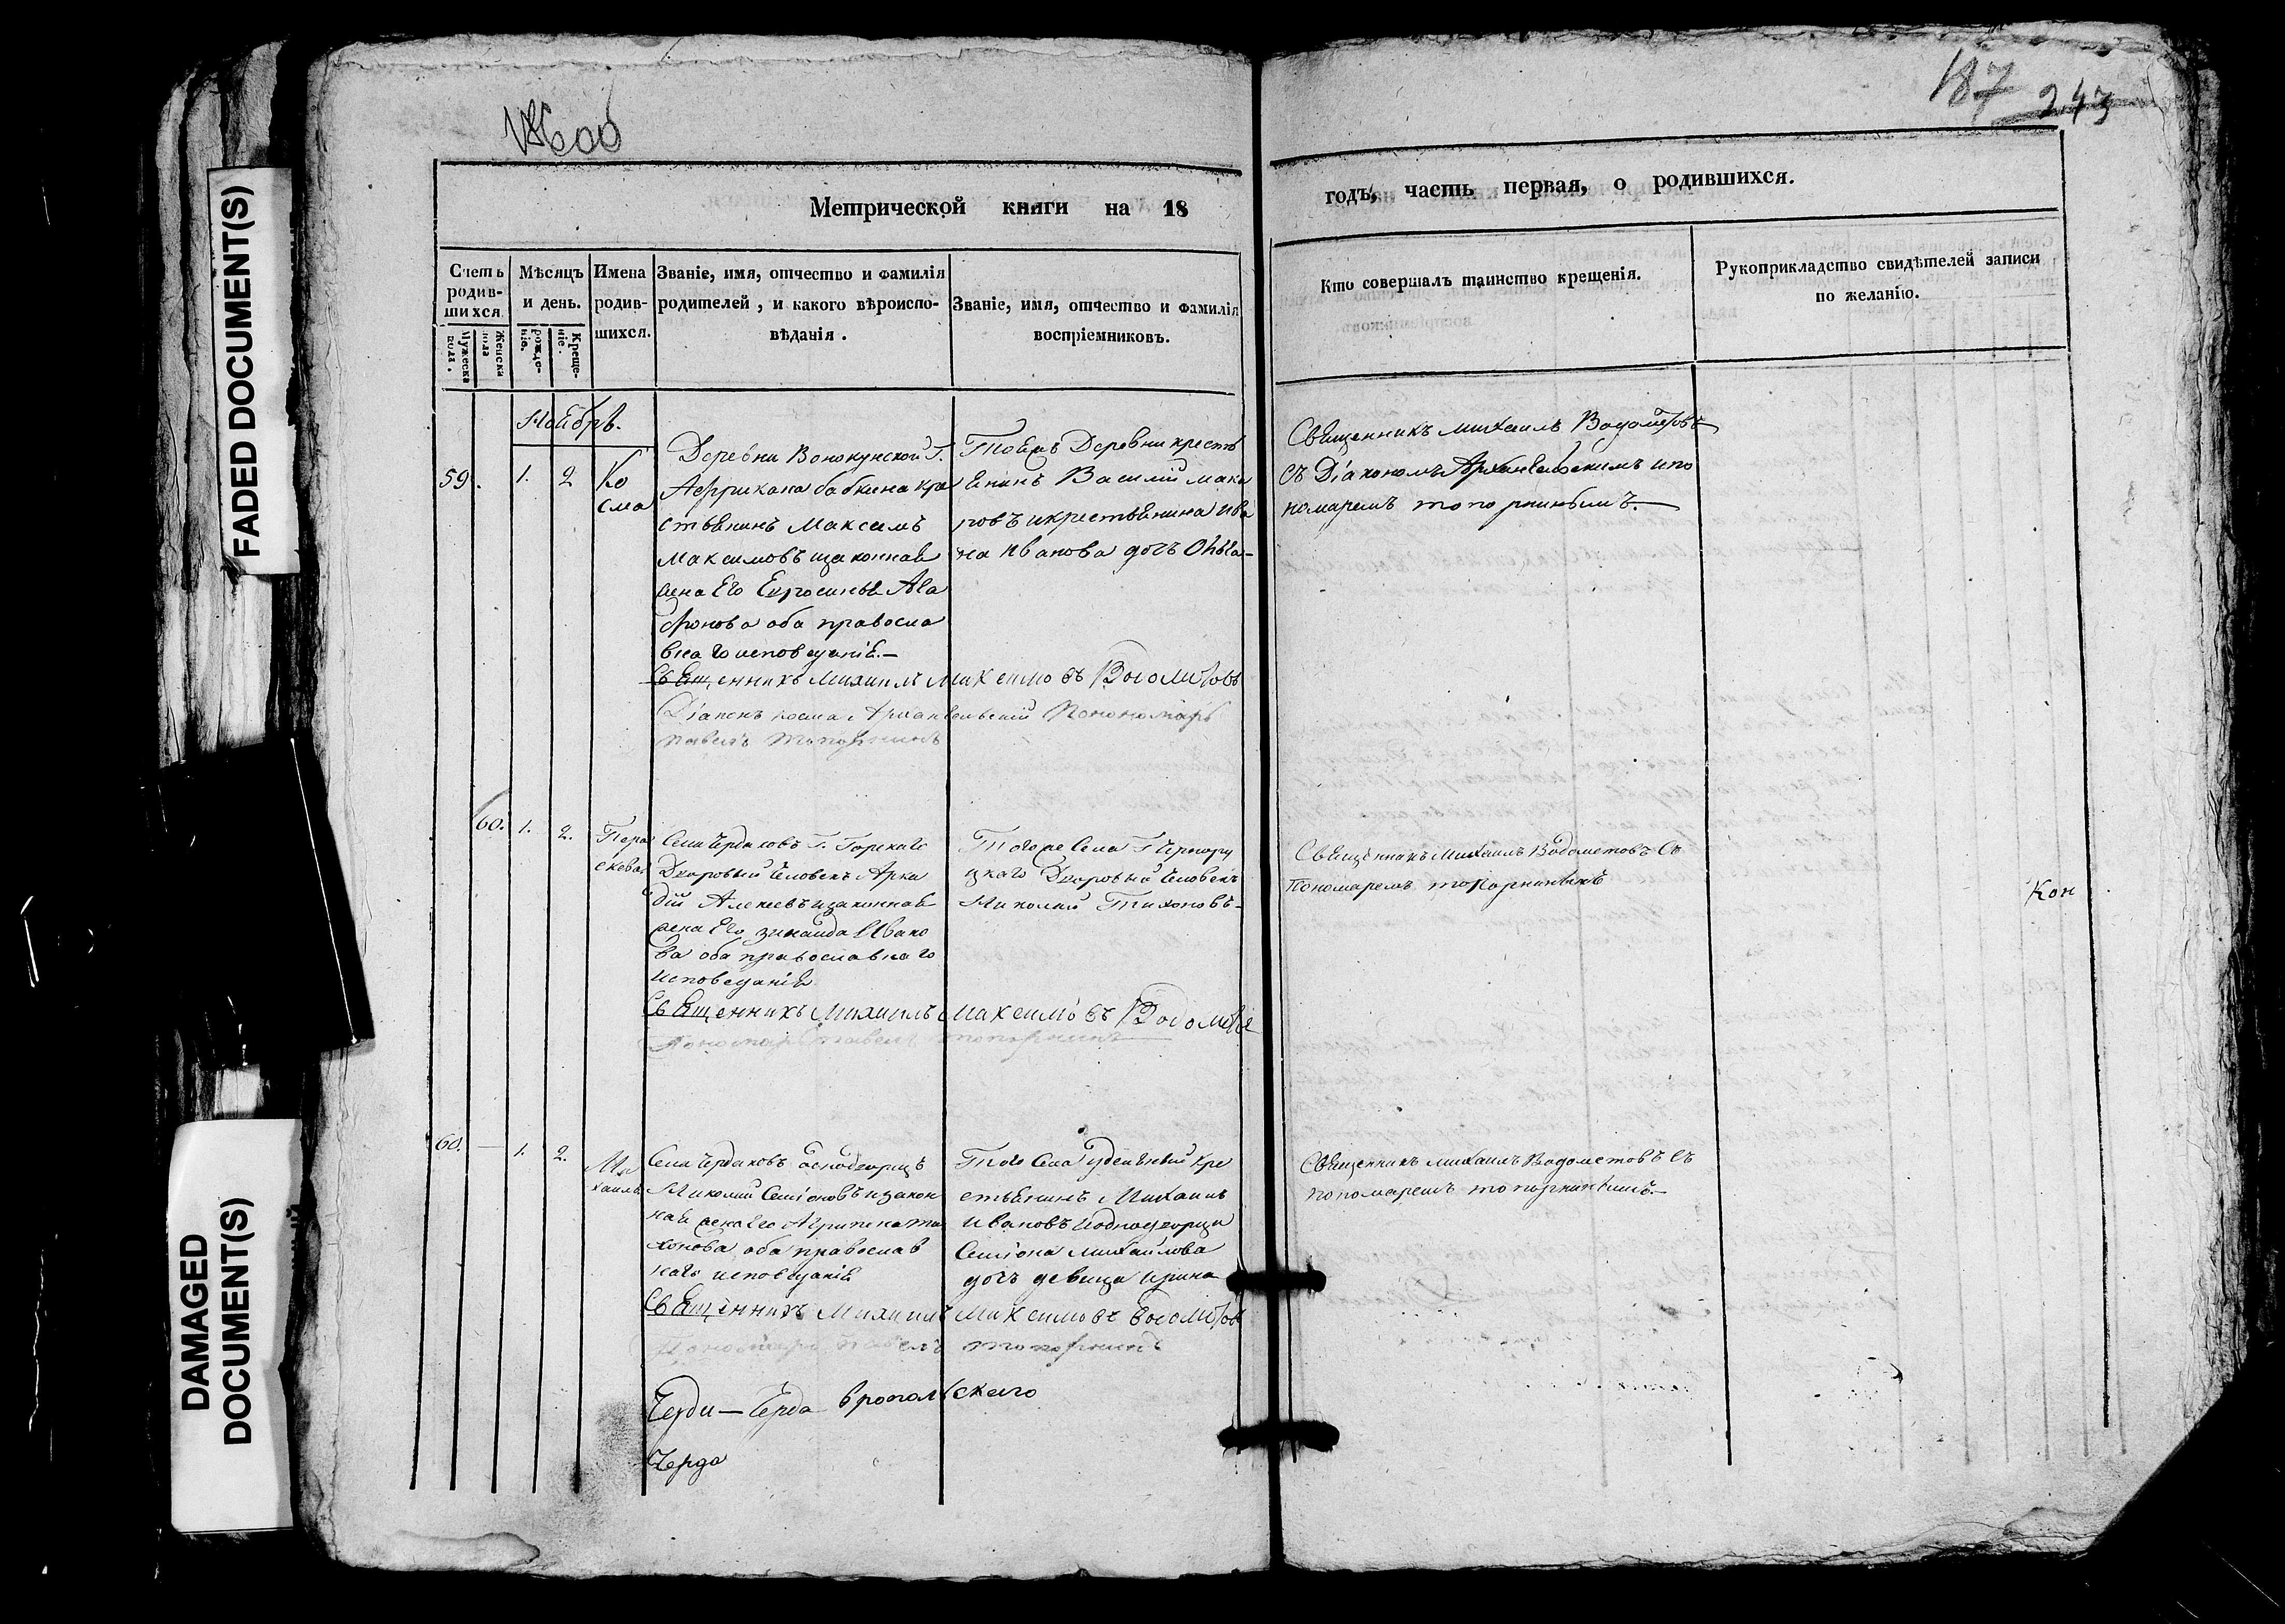 FADED DOCUMENT(S)
DAMAGED
DOCUMENT(S)
187
243
Метрической книги на 18
годъ, часть первая, о родившихся.
Счетъ
родив-
шихся.
Мужеска
пола.
Женска
пола
Мѣсяцъ
и день.
рожде-
ніе.
Креще-
ніе.
Имена
родив-
шихся.
Званіе, имя, отчество и фамилія
родителей, и какого вѣроиспо-
вѣданія.
Званіе, имя, отчество и фамилія
воспріемниковъ.
Кто совершалъ таинство крещенія.
Рукоприкладство свидѣтелей записи
по желанію.
Ноябрь.
59. 1. 2 Ко
сма
Деревни Г.
бабкина кре
стьянинъ Максимъ
Максимовъ изаконная
жена Его
оба правосла
внаго исповеданія.—
Священникъ Михаилъ Максимовъ Водометовъ
Діаконъ косма Архангельскій Пономарь
павелъ топорнинъ
Тояжъ Деревни кресть
янинъ Василій мака
ровъ икрестьянина ива
на иванова дочь
Священникъ михаилъ Водометовъ
съ Діакономъ Архангельскимъ ипо
номаремъ топорнинымъ.—
60. 1. 2. Пара
скева
Села Чердаковъ Г. Горскаго
Дворовый Человекъ Арка
дій Алексеевъ изаконная
жена Его зинаида Ивано
ва оба православнаго
исповеданія
Священникъ Михаилъ максимовъ Водометовъ
Пономарь павелъ топорнинъ
Тогоже Села Г
Дворовый Человекъ
Николай Тихоновъ—
Священникъ Михаилъ Водометовъ Съ
Пономаремъ топорнинымъ
Кон
60. — 1. 2. Ми
хаилъ
Села Чердаковъ
Николай Семіоновъ изакон
ная жена Его Агрипена ти
хонова оба православ
наго исповеданія
Священникъ Михаилъ максимовъ Водометовъ
Пономарь павелъ топорнинъ
Того Села удельный Кре
стьянинъ Михаилъ
Ивановъ иоднодворца
Семіона михайлова
дочь девица ирина
Священникъ михаилъ Водометовъ Съ
пономаремъ топорнинымъ.—
Черди—Черда
Черда